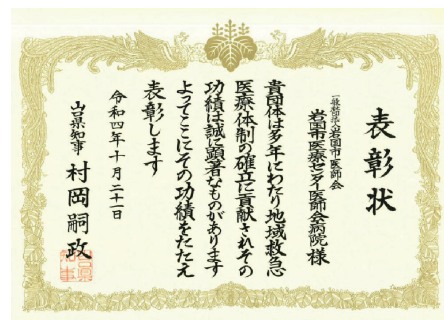 表彰状
一般社団法人岩国市医師会
岩国市医療センター医師会病院 様
貴団体は多年にわたり地域救急
医療体制の確立に貢献されその
功績は誠に顕著なものがあります
よってここにその功績をたたえ
表彰します
令和四年十月二十一日
山口県知事 村岡嗣政